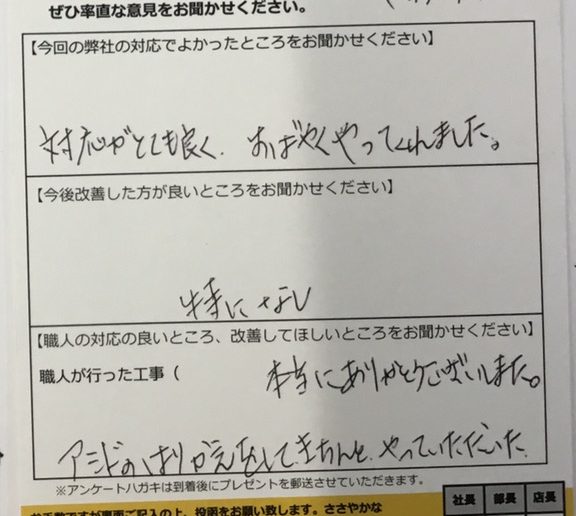 ぜひ率直な意見をお聞かせください。
【今回の弊社の対応でよかったところをお聞かせください】
対応がとても良く、すばやくやってくれました。
【今後改善した方が良いところをお聞かせください】
特になし
【職人の対応の良いところ、改善してほしいところをお聞かせください】
職人が行った工事（
本当にありがとうございました。
アミドのはりかえをしてきちんと、やっていただいた
※アンケートハガキは到着後にプレゼントを郵送させていただきます。
お手数ですが裏面ご記入の上、投函をお願い致します。ささやかな
社長 部長 店長